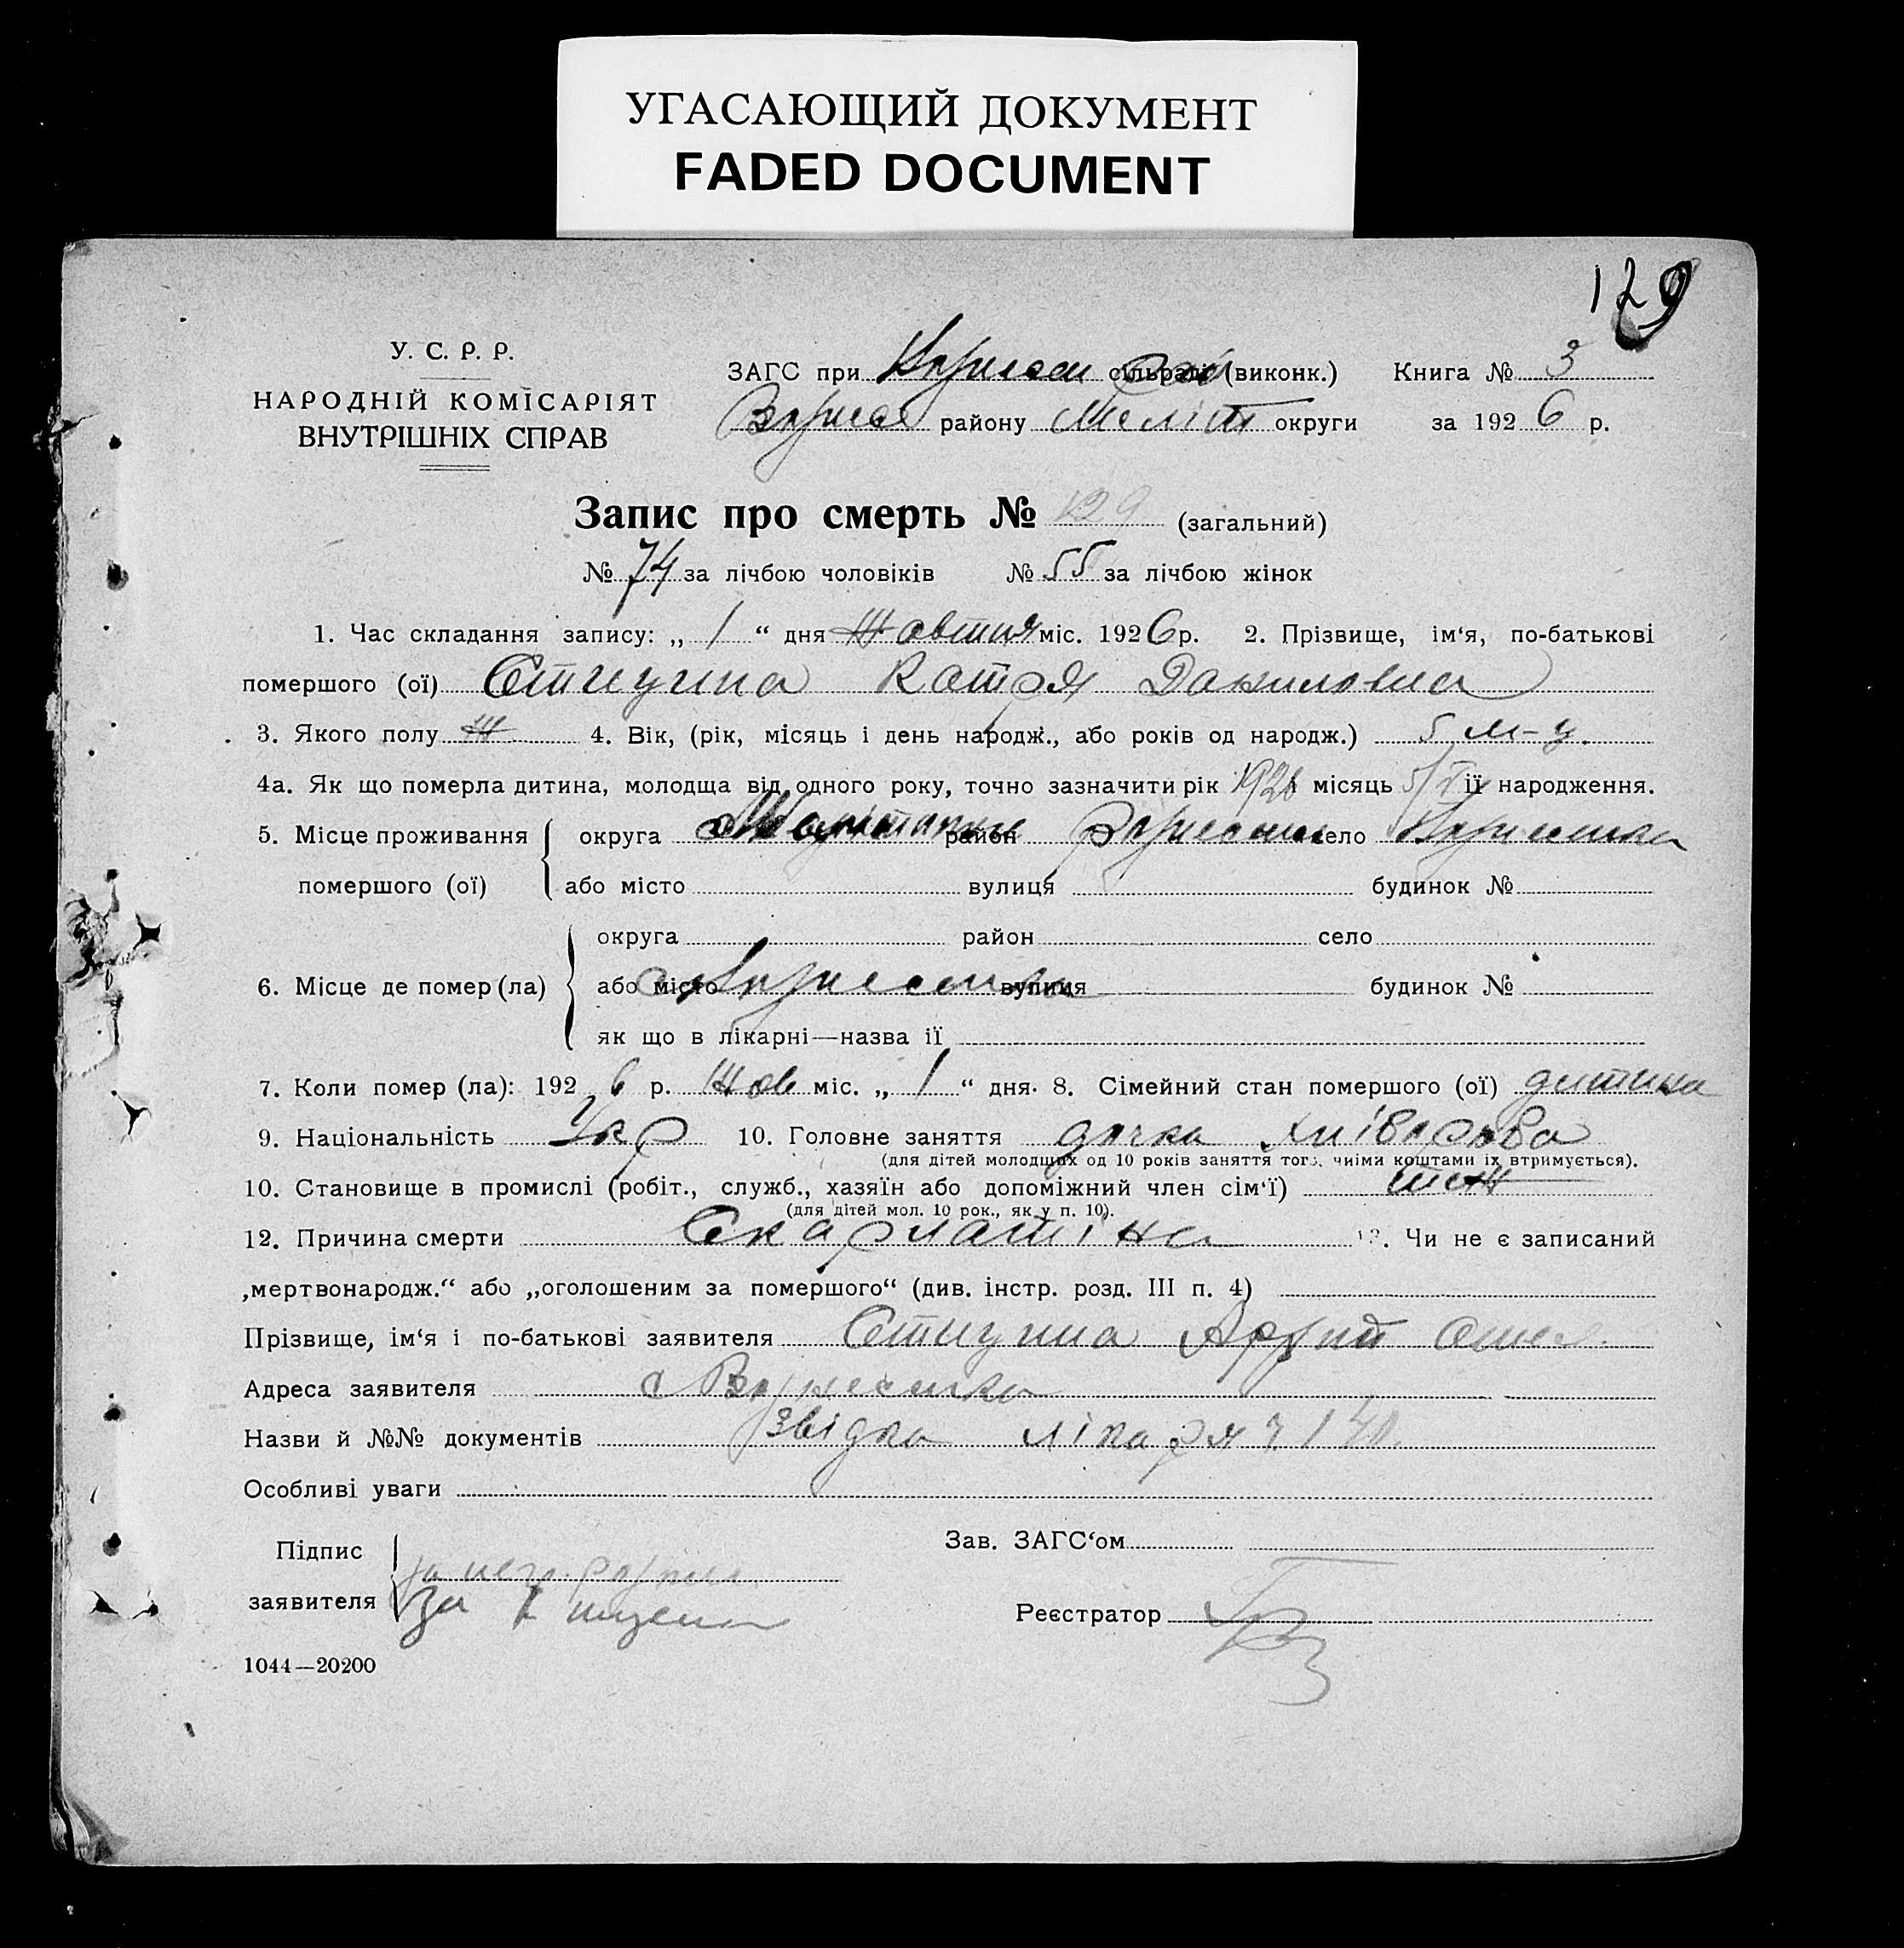 УГАСАЮЩИЙ ДОКУМЕНТ
FADED DOCUMENT
129
У. С. Р. Р.
НАРОДНІЙ КОМІСАРІЯТ
ВНУТРІШНІХ СПРАВ
ЗАГС при сільраді (виконк.) Книга № 3
району Меліт округи за 1926 р.
Запис про смерть № 129 (загальний)
№ 74 за лічбою чоловіків № 55 за лічбою жінок
1. Час складання запису: „ 1 “ дня Жовтня міс. 1926 р. 2. Прізвище, ім‘я, по-батькові
помершого (ої) Катря Даниловна
3. Якого полу Ж 4. Вік, (рік, місяць і день народж., або років од народж.) 5 м-ц.
4а. Як що померла дитина, молодща від одного року, точно зазначити рік 1926 місяць 5/V її народження.
5. Місце проживання округа район село
помершого (ої) або місто вулиця будинок №
округа район село
6. Місце де помер (ла) або місто вулиця будинок №
як що в лікарні—назва її
7. Коли помер (ла): 1926 р. Жов міс. „ 1 “ дня. 8. Сімейний стан помершого (ої) дитина
9. Національність Укр 10. Головне заняття дочка хлівороба
(для дітей молодщих од 10 років заняття того, чиїми коштами їх втримується).
10. Становище в промислі (робіт., служб., хазяїн або допоміжний член сім‘ї) теж
(для дітей мол. 10 рок., як у п. 10).
12. Причина смерти Скарлатіна 13. Чи не є записаний
„мертвонародж.“ або „оголошеним за помершого“ (див. інстр. розд. III п. 4)
Прізвище, ім‘я і по-батькові заявителя
Адреса заявителя с Вознесенка
Назви й №№ документів Звідка лікаря
Особливі уваги
Підпис Зав. ЗАГС‘ом
заявителя за Реєстратор
1044—20200